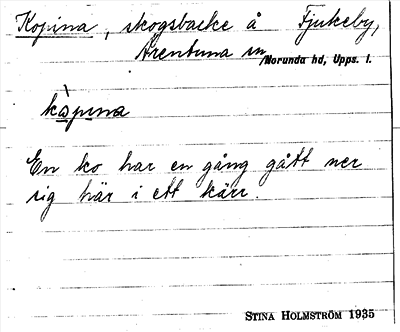 Kopina, skogsbacke å Fjukeby,
Ärentuna sn, Norunda hd, Upps. l.
kàpına
En ko har en gång gått ner
sig här i ett kärr.
STINA HOLMSTRÖM 1935